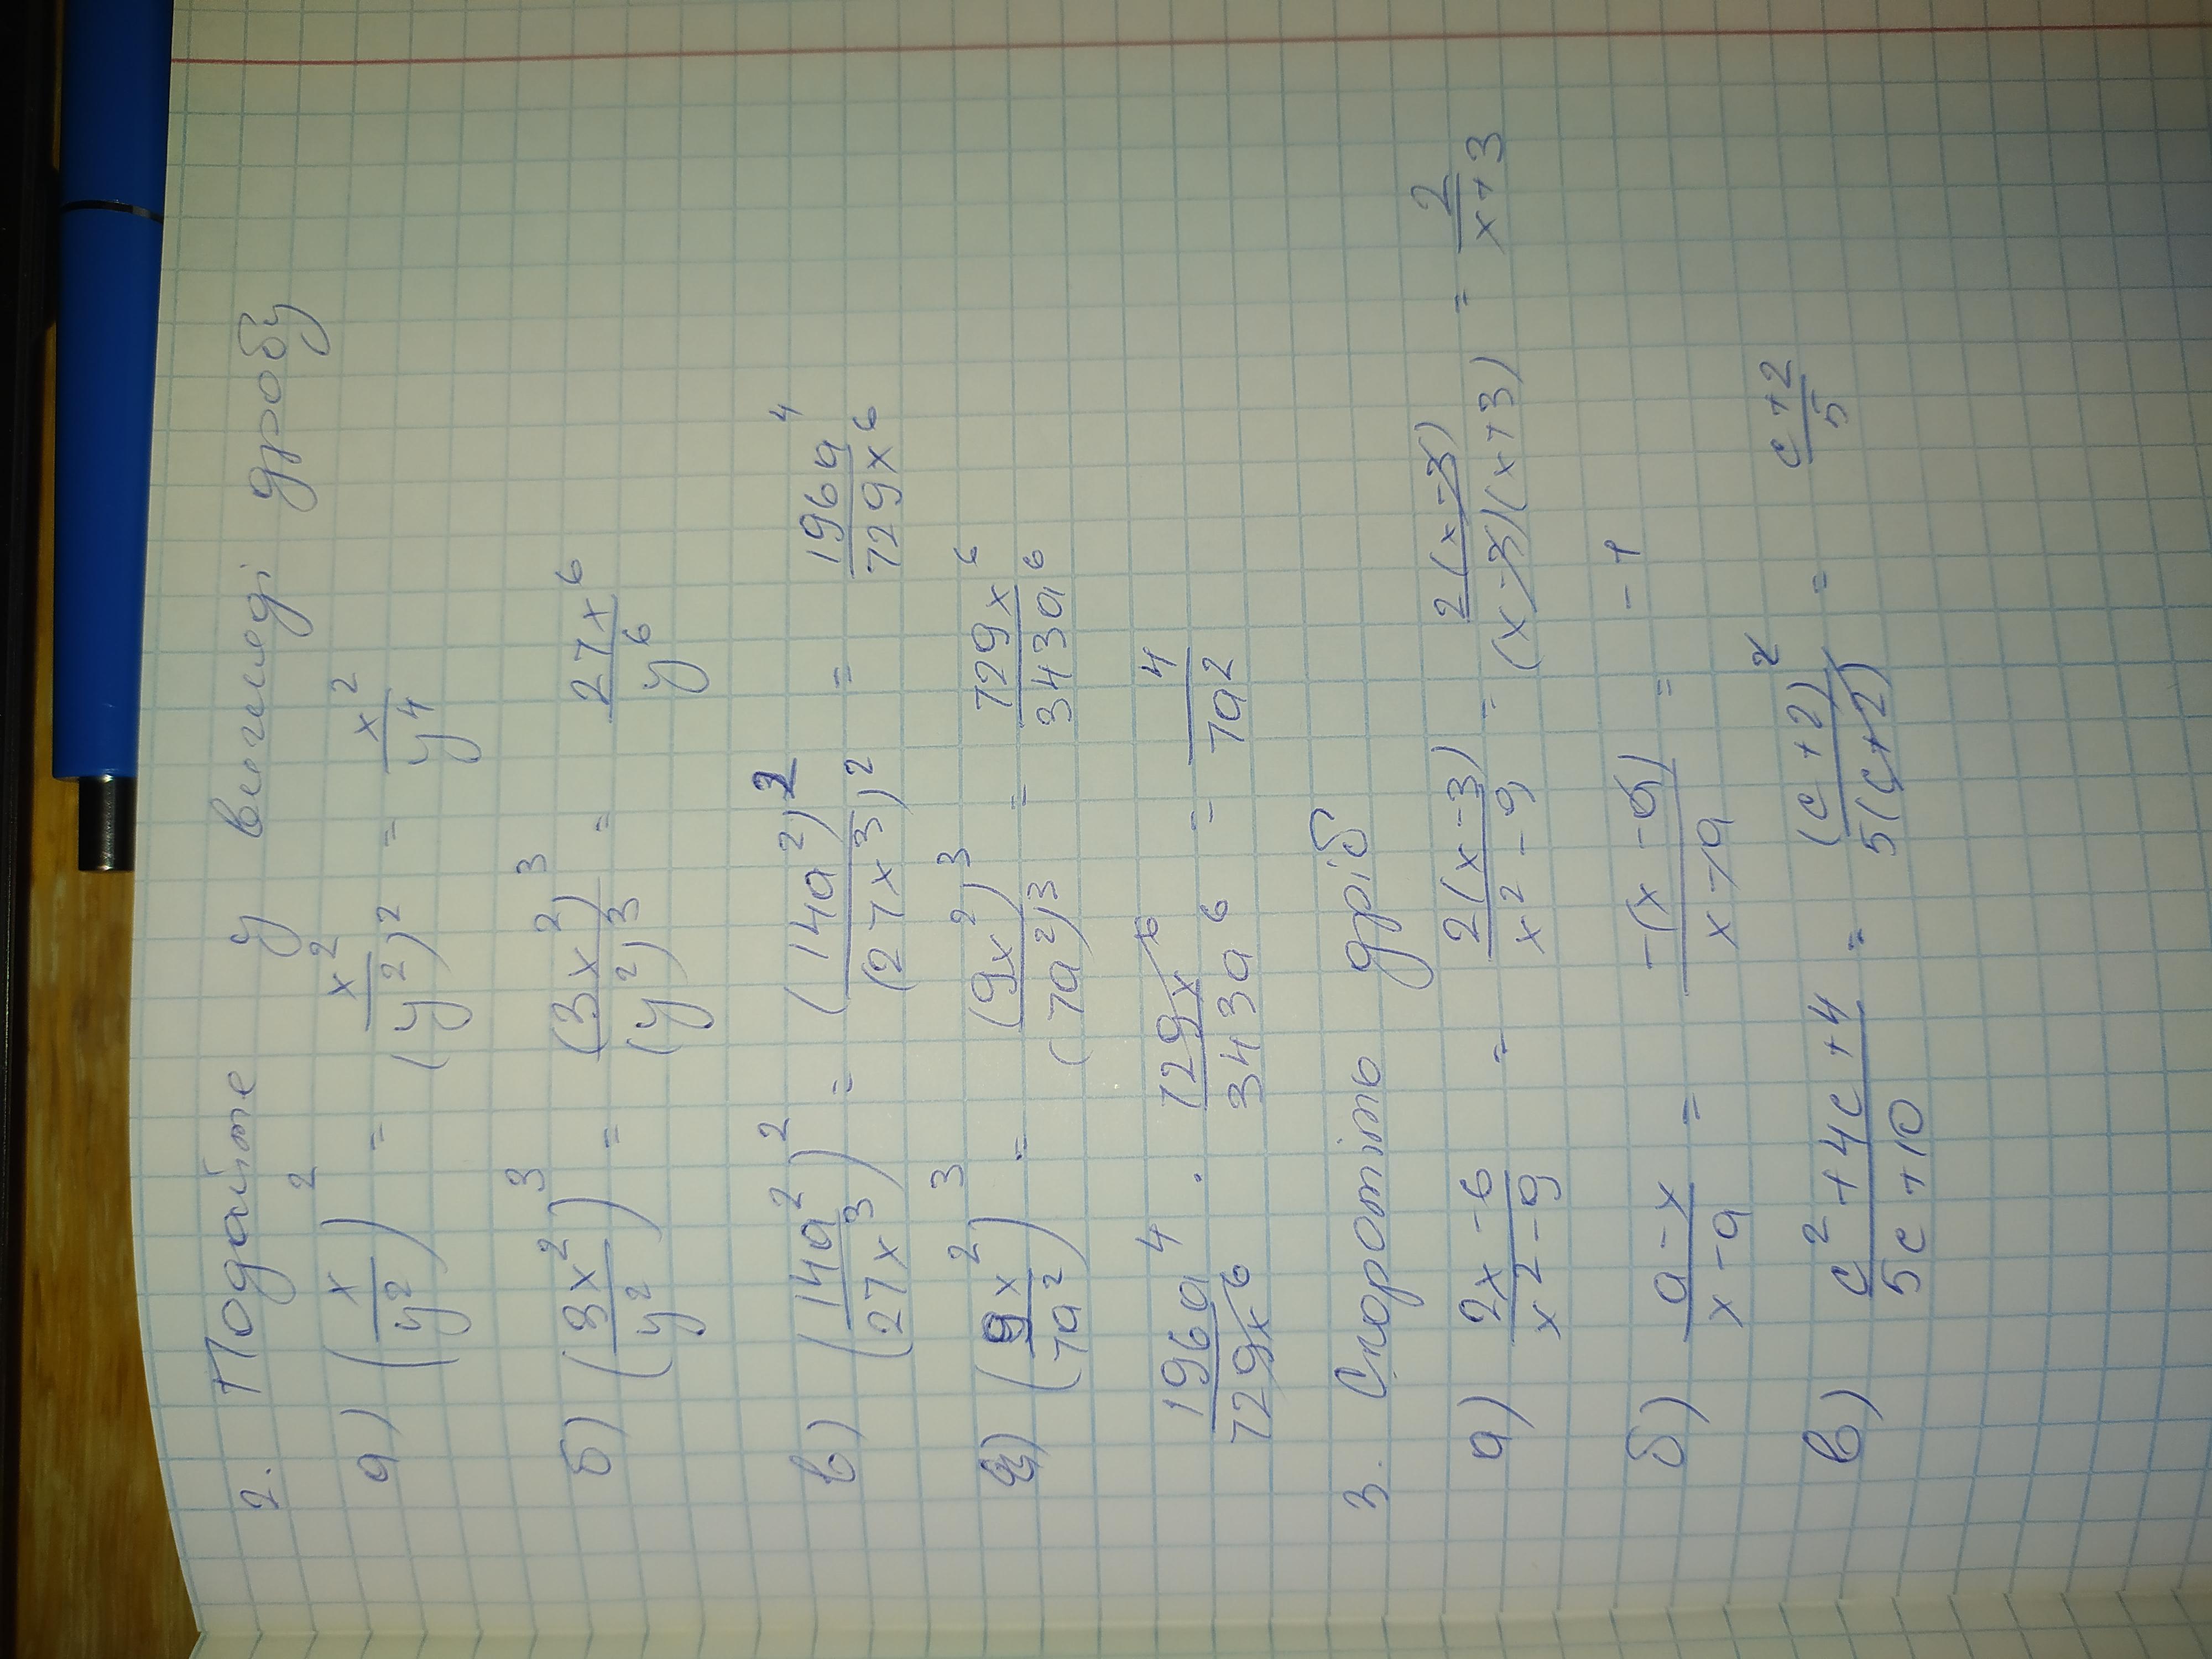 2. Подайте у вигляді дробу
а) (x/y²)² = x²/(y²)² = x²/y⁴
б) (3x²/y²)³ = (3x²)³/(y²)³ = 27x⁶/y⁶
в) (14a²/27x³)² = (14a²)²/(27x³)² = 196a⁴/729x⁶
(9x²/7a²)³ = (9x²)³/(7a²)³ = 729x⁶/343a⁶
196a⁴/729x⁶ · 729x⁶/343a⁶ = 4/7a²
3. Скоротіть дріб
а) 2x-6/x²-9 = 2(x-3)/x²-9 = 2(x-3)/(x-3)(x+3) = 2/x+3
б) a-x/x-a = -(x-a)/x-a = -1
в) c²+4c+4/5c+10 = (c+2)²/5(c+2) = c+2/5